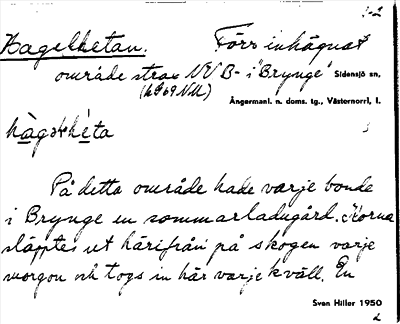 1-2
Hagelhetan. Förr inhägnat
område strax NV B- i "Brynge" Sidensjö sn,
Ångermanl. n. doms. tg., Västernorrl, l.
hàgəlhéta
På detta område hade varje bonde
i Brynge en sommarladugård. Korna
släpptes ut härifrån på skogen varje
morgon och togs in här varje kväll. En
Sven Hiller 1950
2